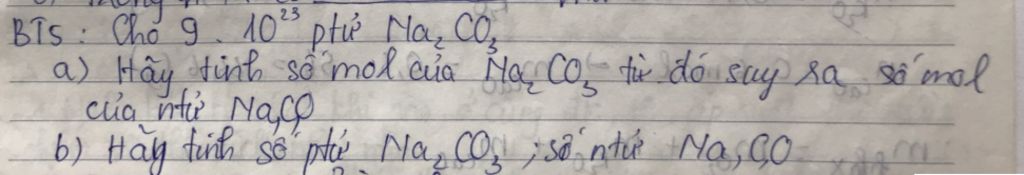 BT5: Cho 9. 10²³ ptử Na₂CO₃
a) Hãy tính số mol của Na₂CO₃ từ đó suy ra số mol
của ntử Na,C,O
b) Hãy tính số ptử Na₂CO₃; số ntử Na,C,O